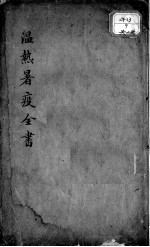 温熱暑疫全書